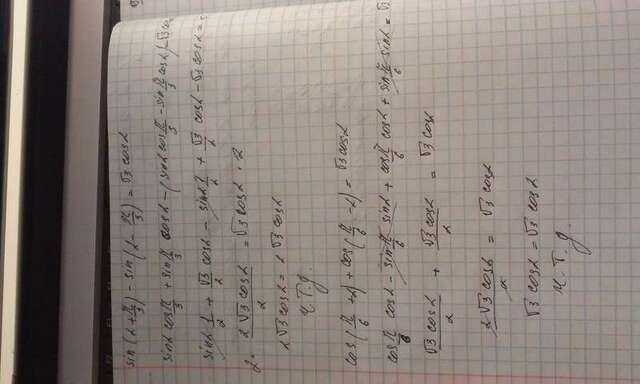 sin(α + π/3) - sin(α - π/3) = √3 cosα
sinα cos π/3 + sin π/3 cosα - (sinα cos π/3 - sin π/3 cosα) = √3 cos
sinα 1/2 + √3/2 cosα - sinα 1/2 + √3/2 cosα - √3 cosα =
2 · 2√3 cosα / 2 = √3 cosα · 2
2√3 cosα = 2√3 cosα
Ч.Т.д.
cos(π/6 + α) + cos(π/6 - α) = √3 cosα
cos π/6 cosα - sin π/6 sinα + cos π/6 cosα + sin π/6 sinα = √3
√3 cosα / 2 + √3 cosα / 2 = √3 cosα
2√3 cosα / 2 = √3 cosα
√3 cosα = √3 cosα
Ч.Т.д.